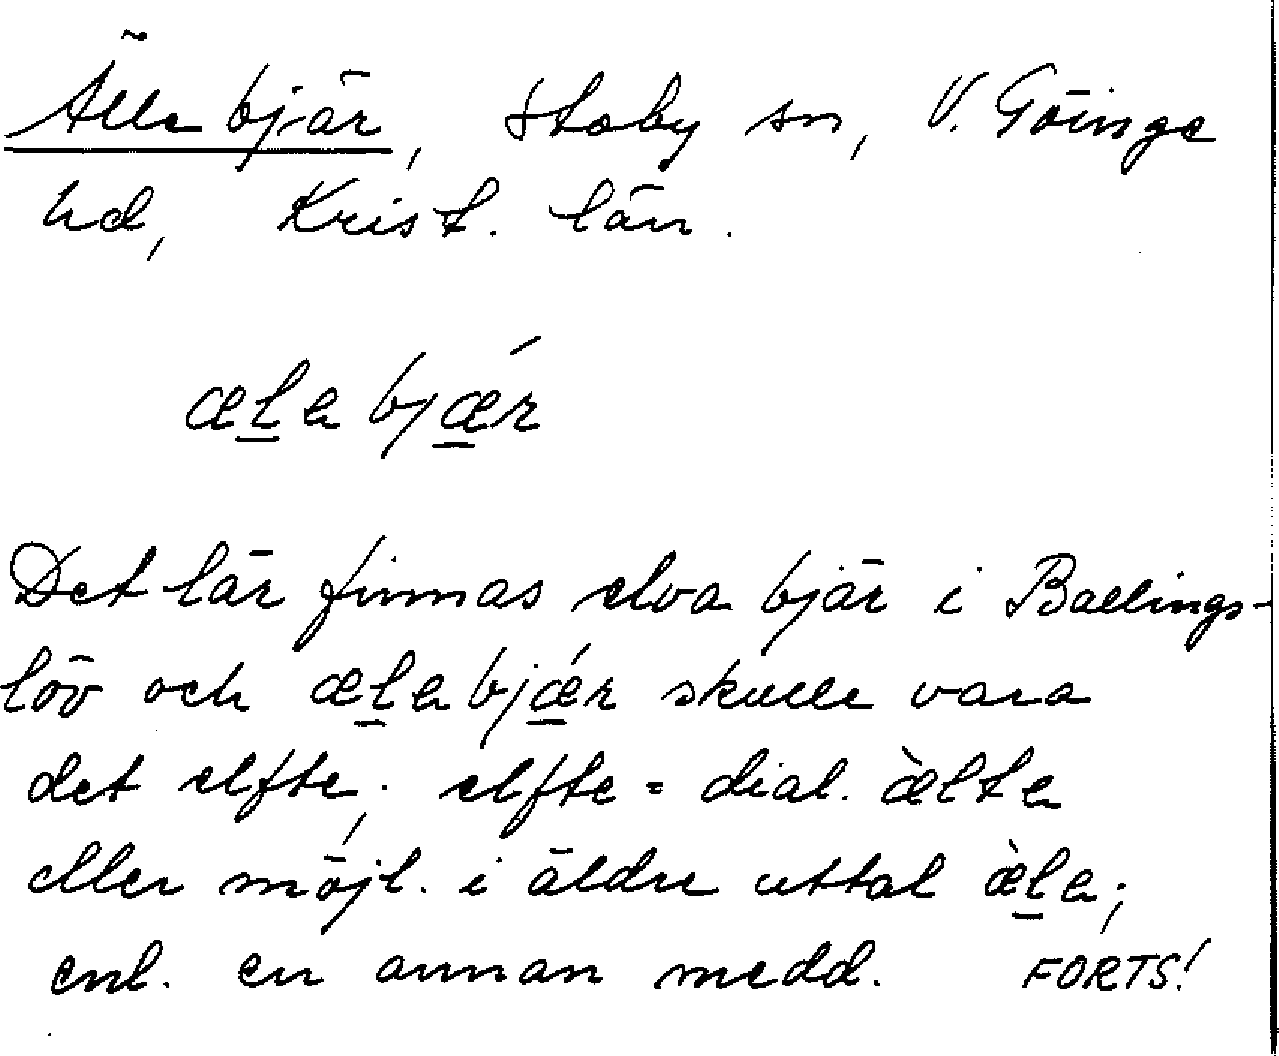 Älle bjär, Stoby sn, V. Göinge
hd, Krist. län.
æla bjǽr
Det lär finnas elva bjär i Ballings-
löv och æla bjǽr skulle vara
det elfte; elfte = dial. æ̀lta
eller möjl. i äldre uttal æ̀la;
enl. en annan medd. FORTS!